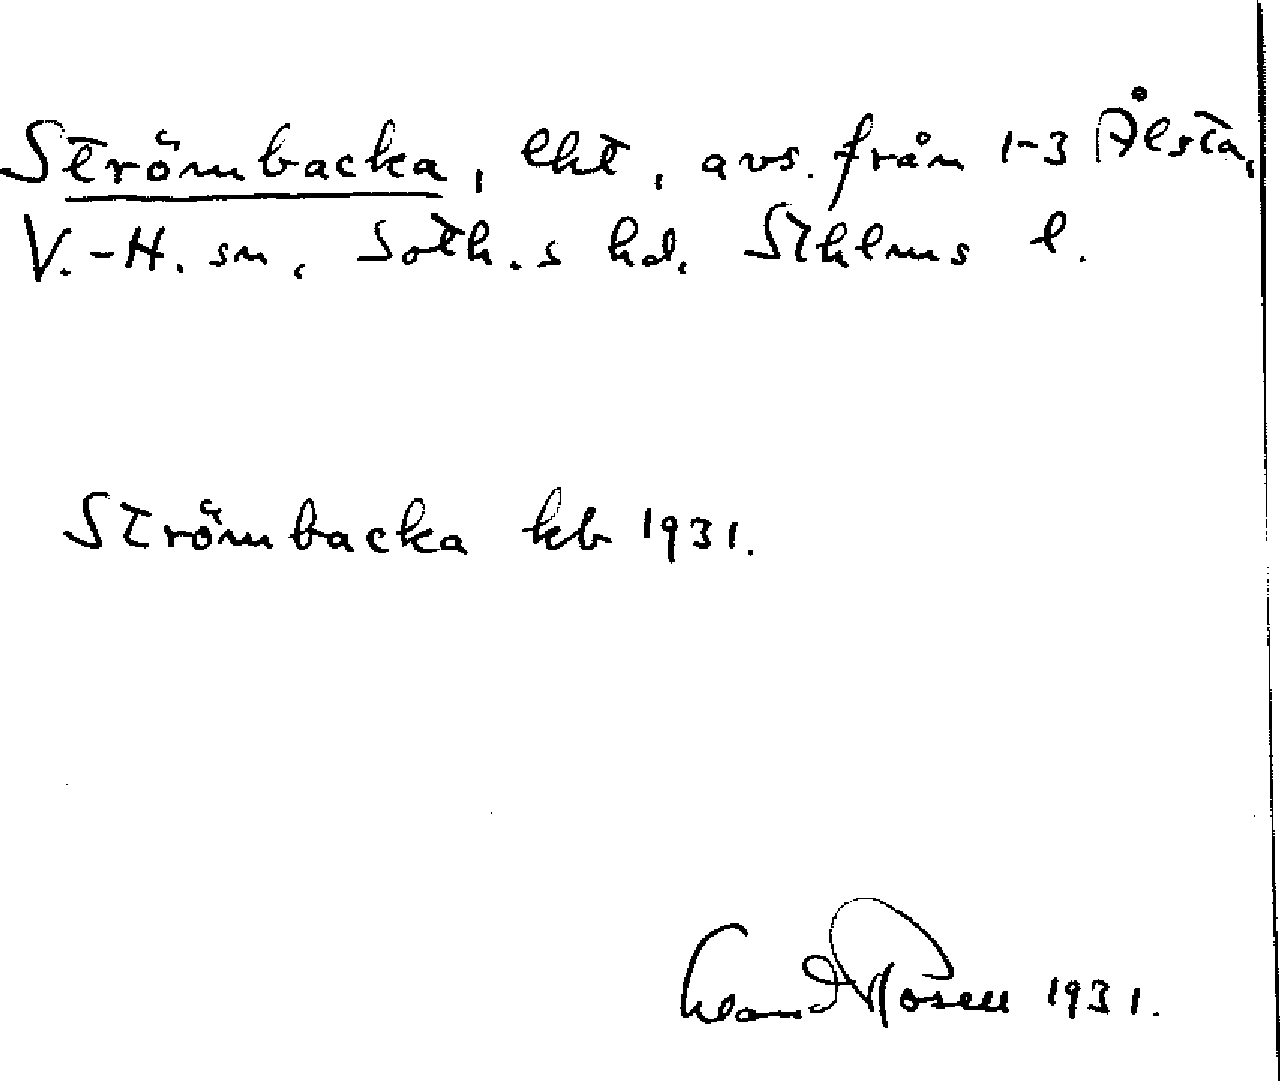 Strömbacka, lht, avs. från 1-3 Ålsta,
V.-H. sn, Soth.s hd, Sthlms l.
Strömbacka kb 1931.
Rosell 1931.